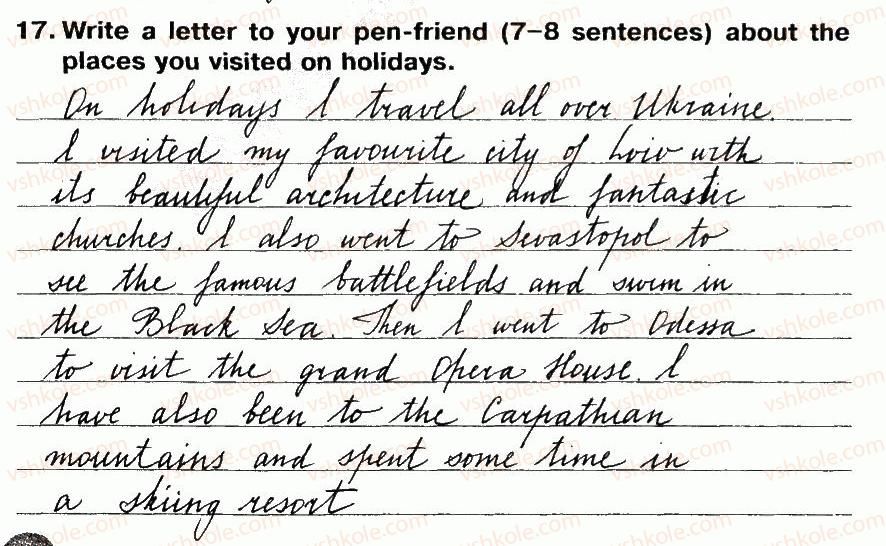 17. Write a letter to your pen-friend (7–8 sentences) about the
places you visited on holidays.
On holidays I travel all over Ukraine.
I visited my favourite city of Lviv with
its beautiful architecture and fantastic
churches. I also went to Sevastopol to
see the famous battlefields and swim in
the Black Sea. Then I went to Odessa
to visit the grand Opera House. I
have also been to the Carpathian
mountains and spent some time in
a skiing resort